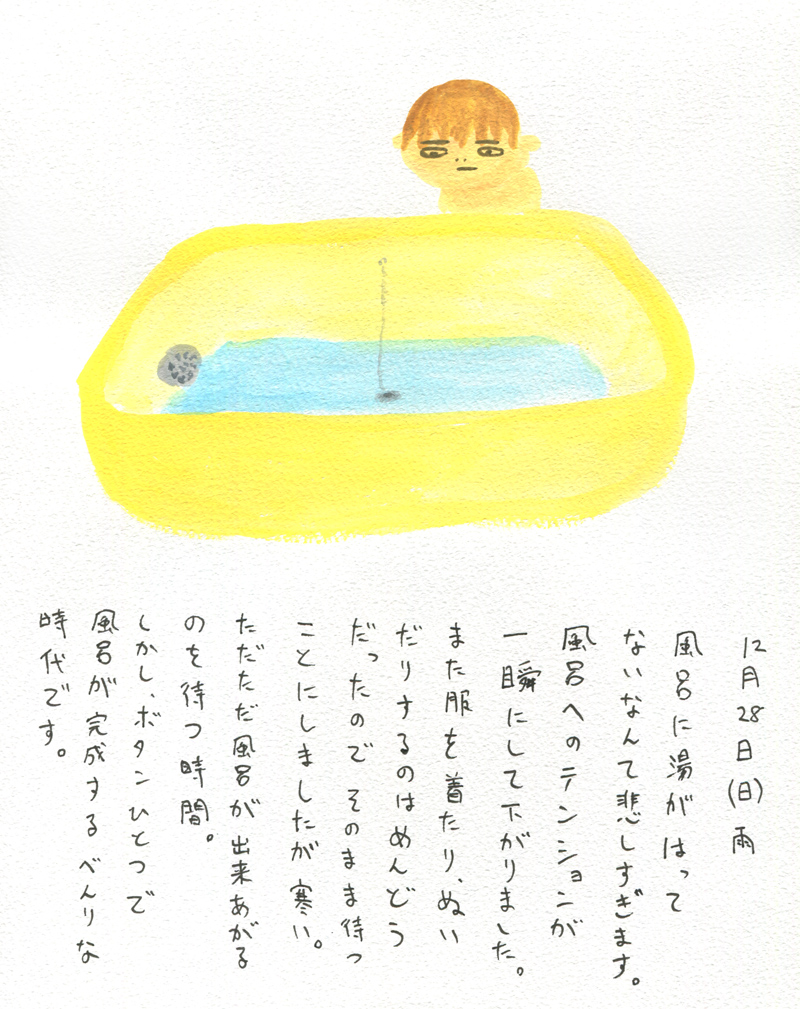 12月28日(日)雨
風呂に湯がはって
ないなんて悲しすぎます。
風呂へのテンションが
一瞬にして下がりました。
また服を着たり、ぬい
だりするのはめんどう
だったのでそのまま待つ
ことにしましたが寒い。
ただただ風呂が出来あがる
のを待つ時間。
しかし、ボタンひとつで
風呂が完成するべんりな
時代です。